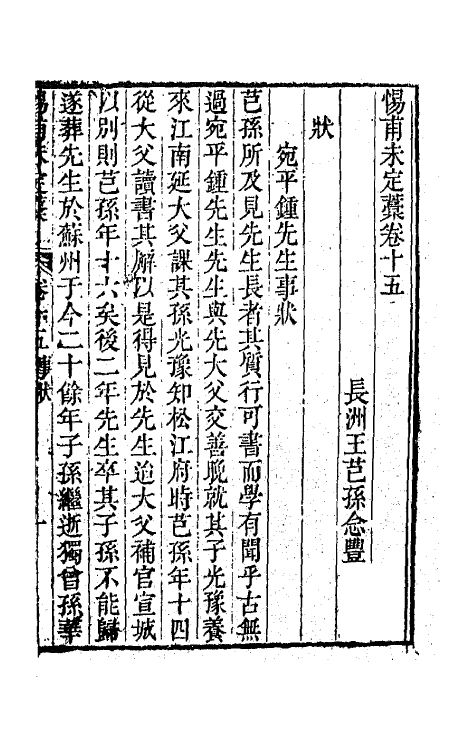 惕甫未定藁卷十五
長洲王芑孫念豐
狀
宛平鍾先生事狀
芑孫所及見先生長者其質行可書而學有聞乎古無
過宛平鍾先生先生與先大父交善晚就其子光豫養
來江南延大父課其孫光豫知松江府時芑孫年十四
從大父讀書其廨以是得見於先生迨大父補官宣城
以別則芑孫年十六矣後二年先生卒其子孫不能歸
遂葬先生於蘇州于今二十餘年子孫繼逝獨曾孫
惕甫未定藁 卷十五